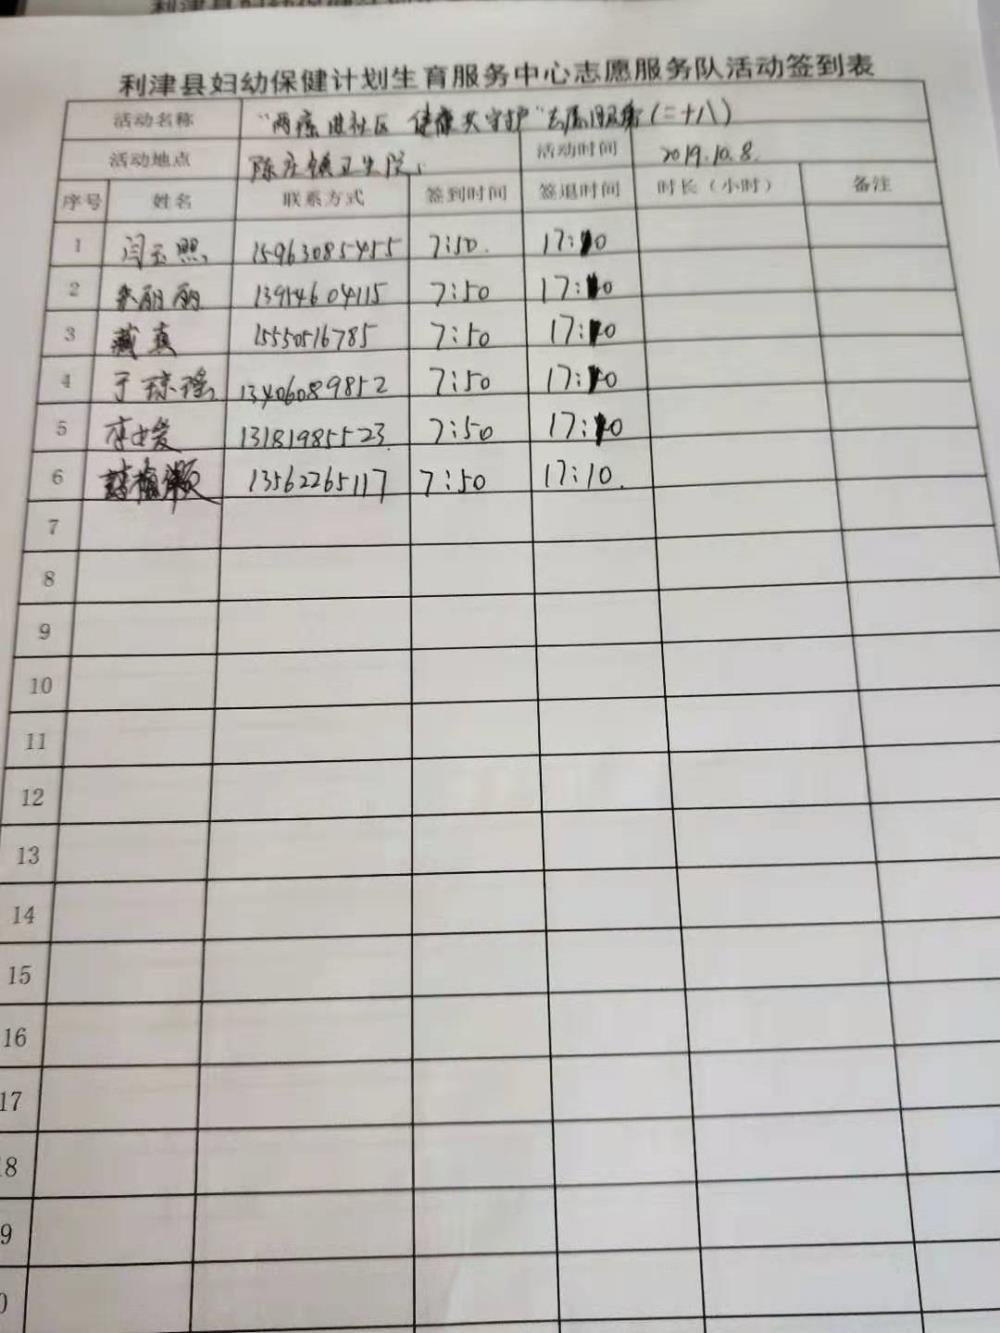 利津县妇幼保健计划生育服务中心志愿服务队活动签到表
活动名称 "两癌进社区 健康共守护"志愿服务(二十八)
活动地点 陈庄镇卫生院 活动时间 2019.10.8
序号 姓名 联系方式 签到时间 签退时间 时长（小时） 备注
1 闫玉照 15963085455 7:50 17:10
2 丽丽 13914604115 7:50 17:10
3 臧真 15550516785 7:50 17:10
4 于琼瑶 13406089852 7:50 17:10
5 李媛 13181985523 7:50 17:10
6 13562265117 7:50 17:10
7
8
9
10
11
12
13
14
15
16
17
18
9
0